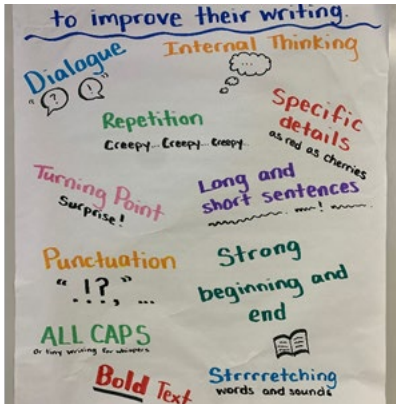 to improve their writing.
Internal Thinking
Dialogue
"? !"
...
Repetition
Creepy... Creepy... Creepy...
Specific
details
as red as cherries
Turning Point
Surprise!
Long and
short sentences
Punctuation
" !? "
. . . , ...
Strong
beginning and
end
ALL CAPS
Or tiny writing for whispers
Bold Text
Strrrretching
words and sounds